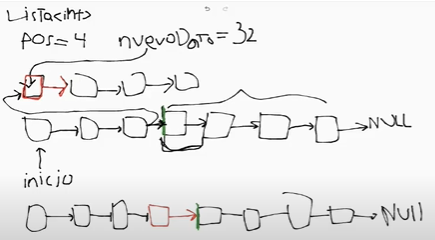 Lista<int>
pos=4 nuevoDato=32
NULL
inicio
Null